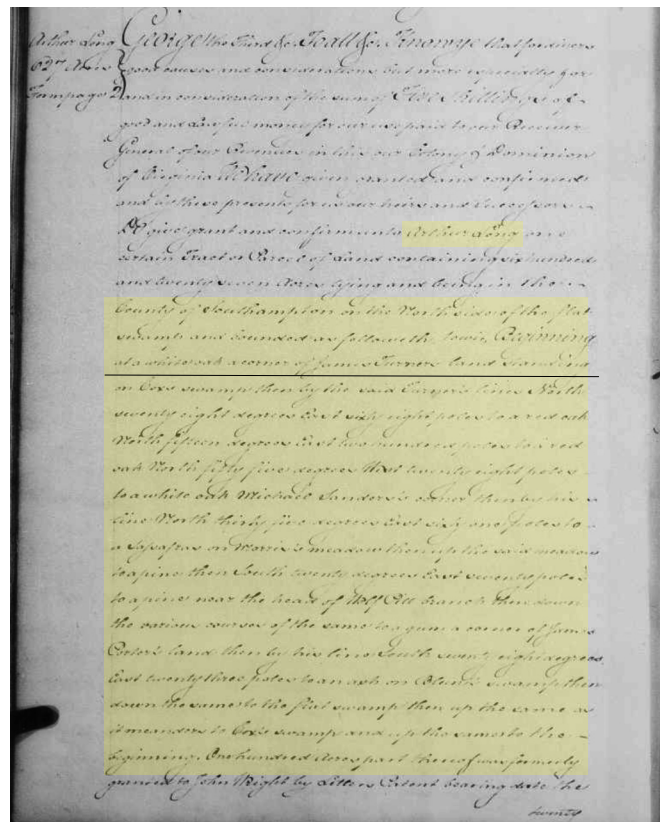 Arthur Long
627 Acres
George the Third &c To all &c Know ye that for divers
good causes and considerations but more especially for
and in consideration of the sum of Five Shillings of
good and Lawful money for our use paid to our Receiver
General of our Revenues in this our Colony & Dominion
of Virginia We have given granted and confirmed
and by these presents for us our heirs and Successors
Do give grant and confirm unto Arthur Long one
certain Tract or Parcel of Land containing six hundred
and twenty seven Acres lying and being in the
County of Southampton on the North side of the flat
swamp and bounded as followeth towit, Beginning
at a white oak a corner of James Turner's land standing
on Cox's swamp then by the said Turner's lines North
seventy eight degrees East sixty eight poles to a red oak
North fifteen degrees East two hundred poles to a red
oak North fifty five degrees West twenty eight poles
to a white oak Michael Sanders's corner then by his
line North thirty five degrees East sixty one poles to
a Sassafras on Morris's meadow then up the said meadow
to a pine then South twenty degrees East seventy poles
to a pine near the head of Wolf Pitt branch then down
the various courses of the same to a gum a corner of James
land then by his line South seventy eight degrees
East twenty three poles to an ash on swamp then
down the same to the flat swamp then up the same as
it meanders to Cox's swamp and up the same to the
beginning. One hundred Acres part thereof was formerly
granted to John Wright by Letters Patent bearing date the
twenty